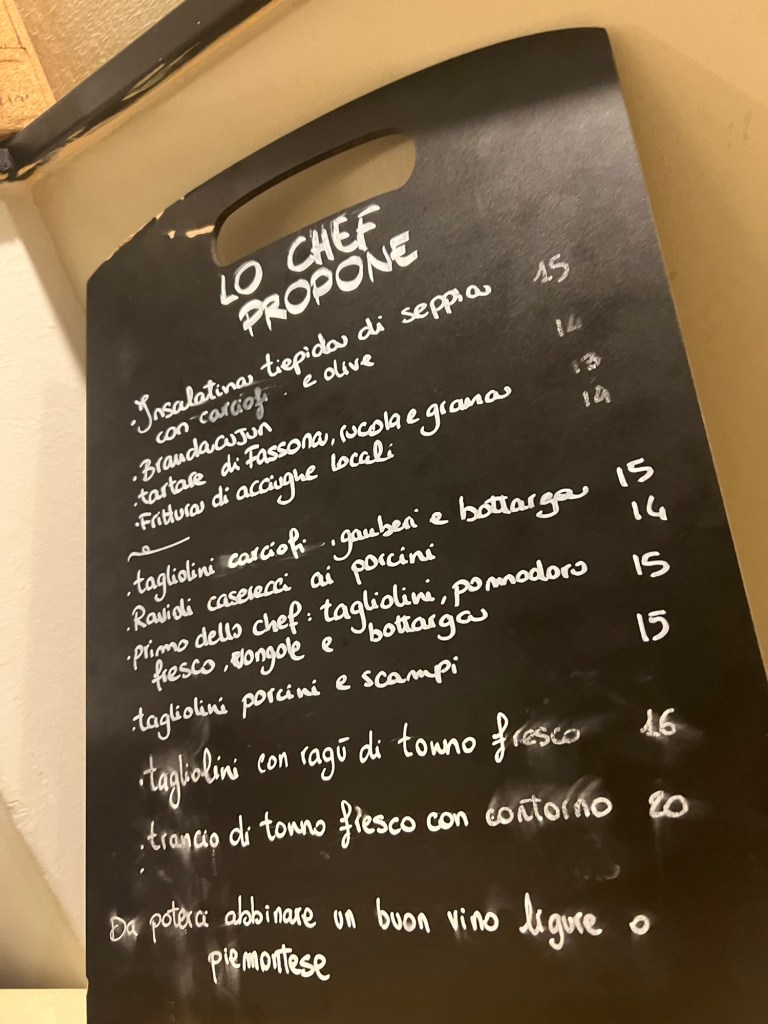 LO CHEF
PROPONE
·Insalatina tiepida di seppia 15
con carciofi e olive
·Brandacujun 14
·tartare di Fassona, rucola e grana 13
·Frittura di acciughe locali 14
·tagliolini carciofi, gamberi e bottarga 15
·Ravioli caserecci ai porcini 14
·primo dello chef: tagliolini, pomodoro 15
fresco, vongole e bottarga
·tagliolini porcini e scampi 15
·tagliolini con ragū di tonno fresco 16
·trancio di tonno fresco con contorno 20
Da poterci abbinare un buon vino ligure o
piemontese